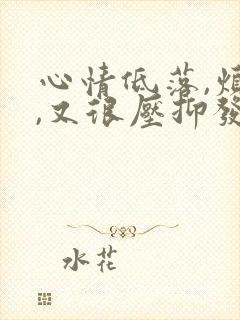 心情低落,烦
,又很壓抑發
水花